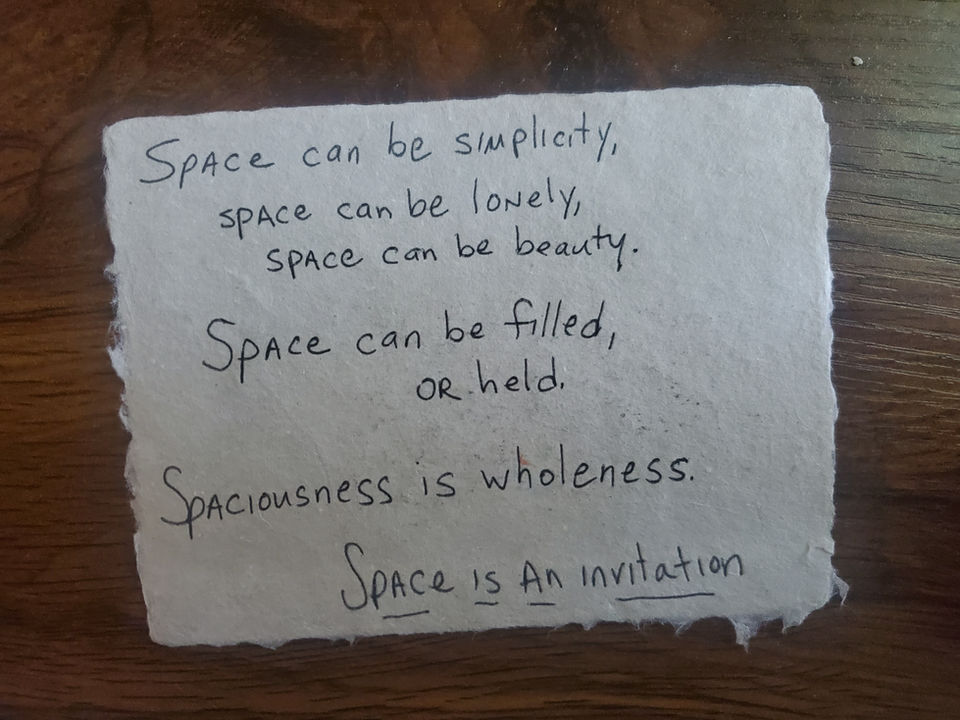 Space can be simplicity,
space can be lonely,
space can be beauty.
Space can be filled,
or held.
Spaciousness is wholeness.
Space is an invitation